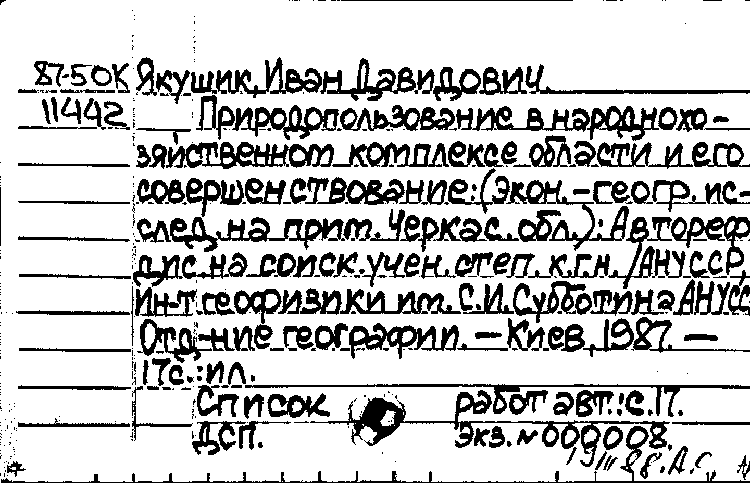 87-5 ОК Якушик, Иван Давидович.
11442 Природопользование в народнохо-
зяйственном комплексе области и его
совершенствование: (Экон.-геогр. ис-
след. на прим. Черкас. обл.): Автореф.
дис. на соиск. учен. степ. к.г.н. / АН УССР,
Ин-т геофизики им. С.И. Субботина АН УСС
Отд-ние географии. — Киев, 1987. —
17 с.: ил.
Список работ авт.: с. 17.
ДСП. Экз. № 000008.